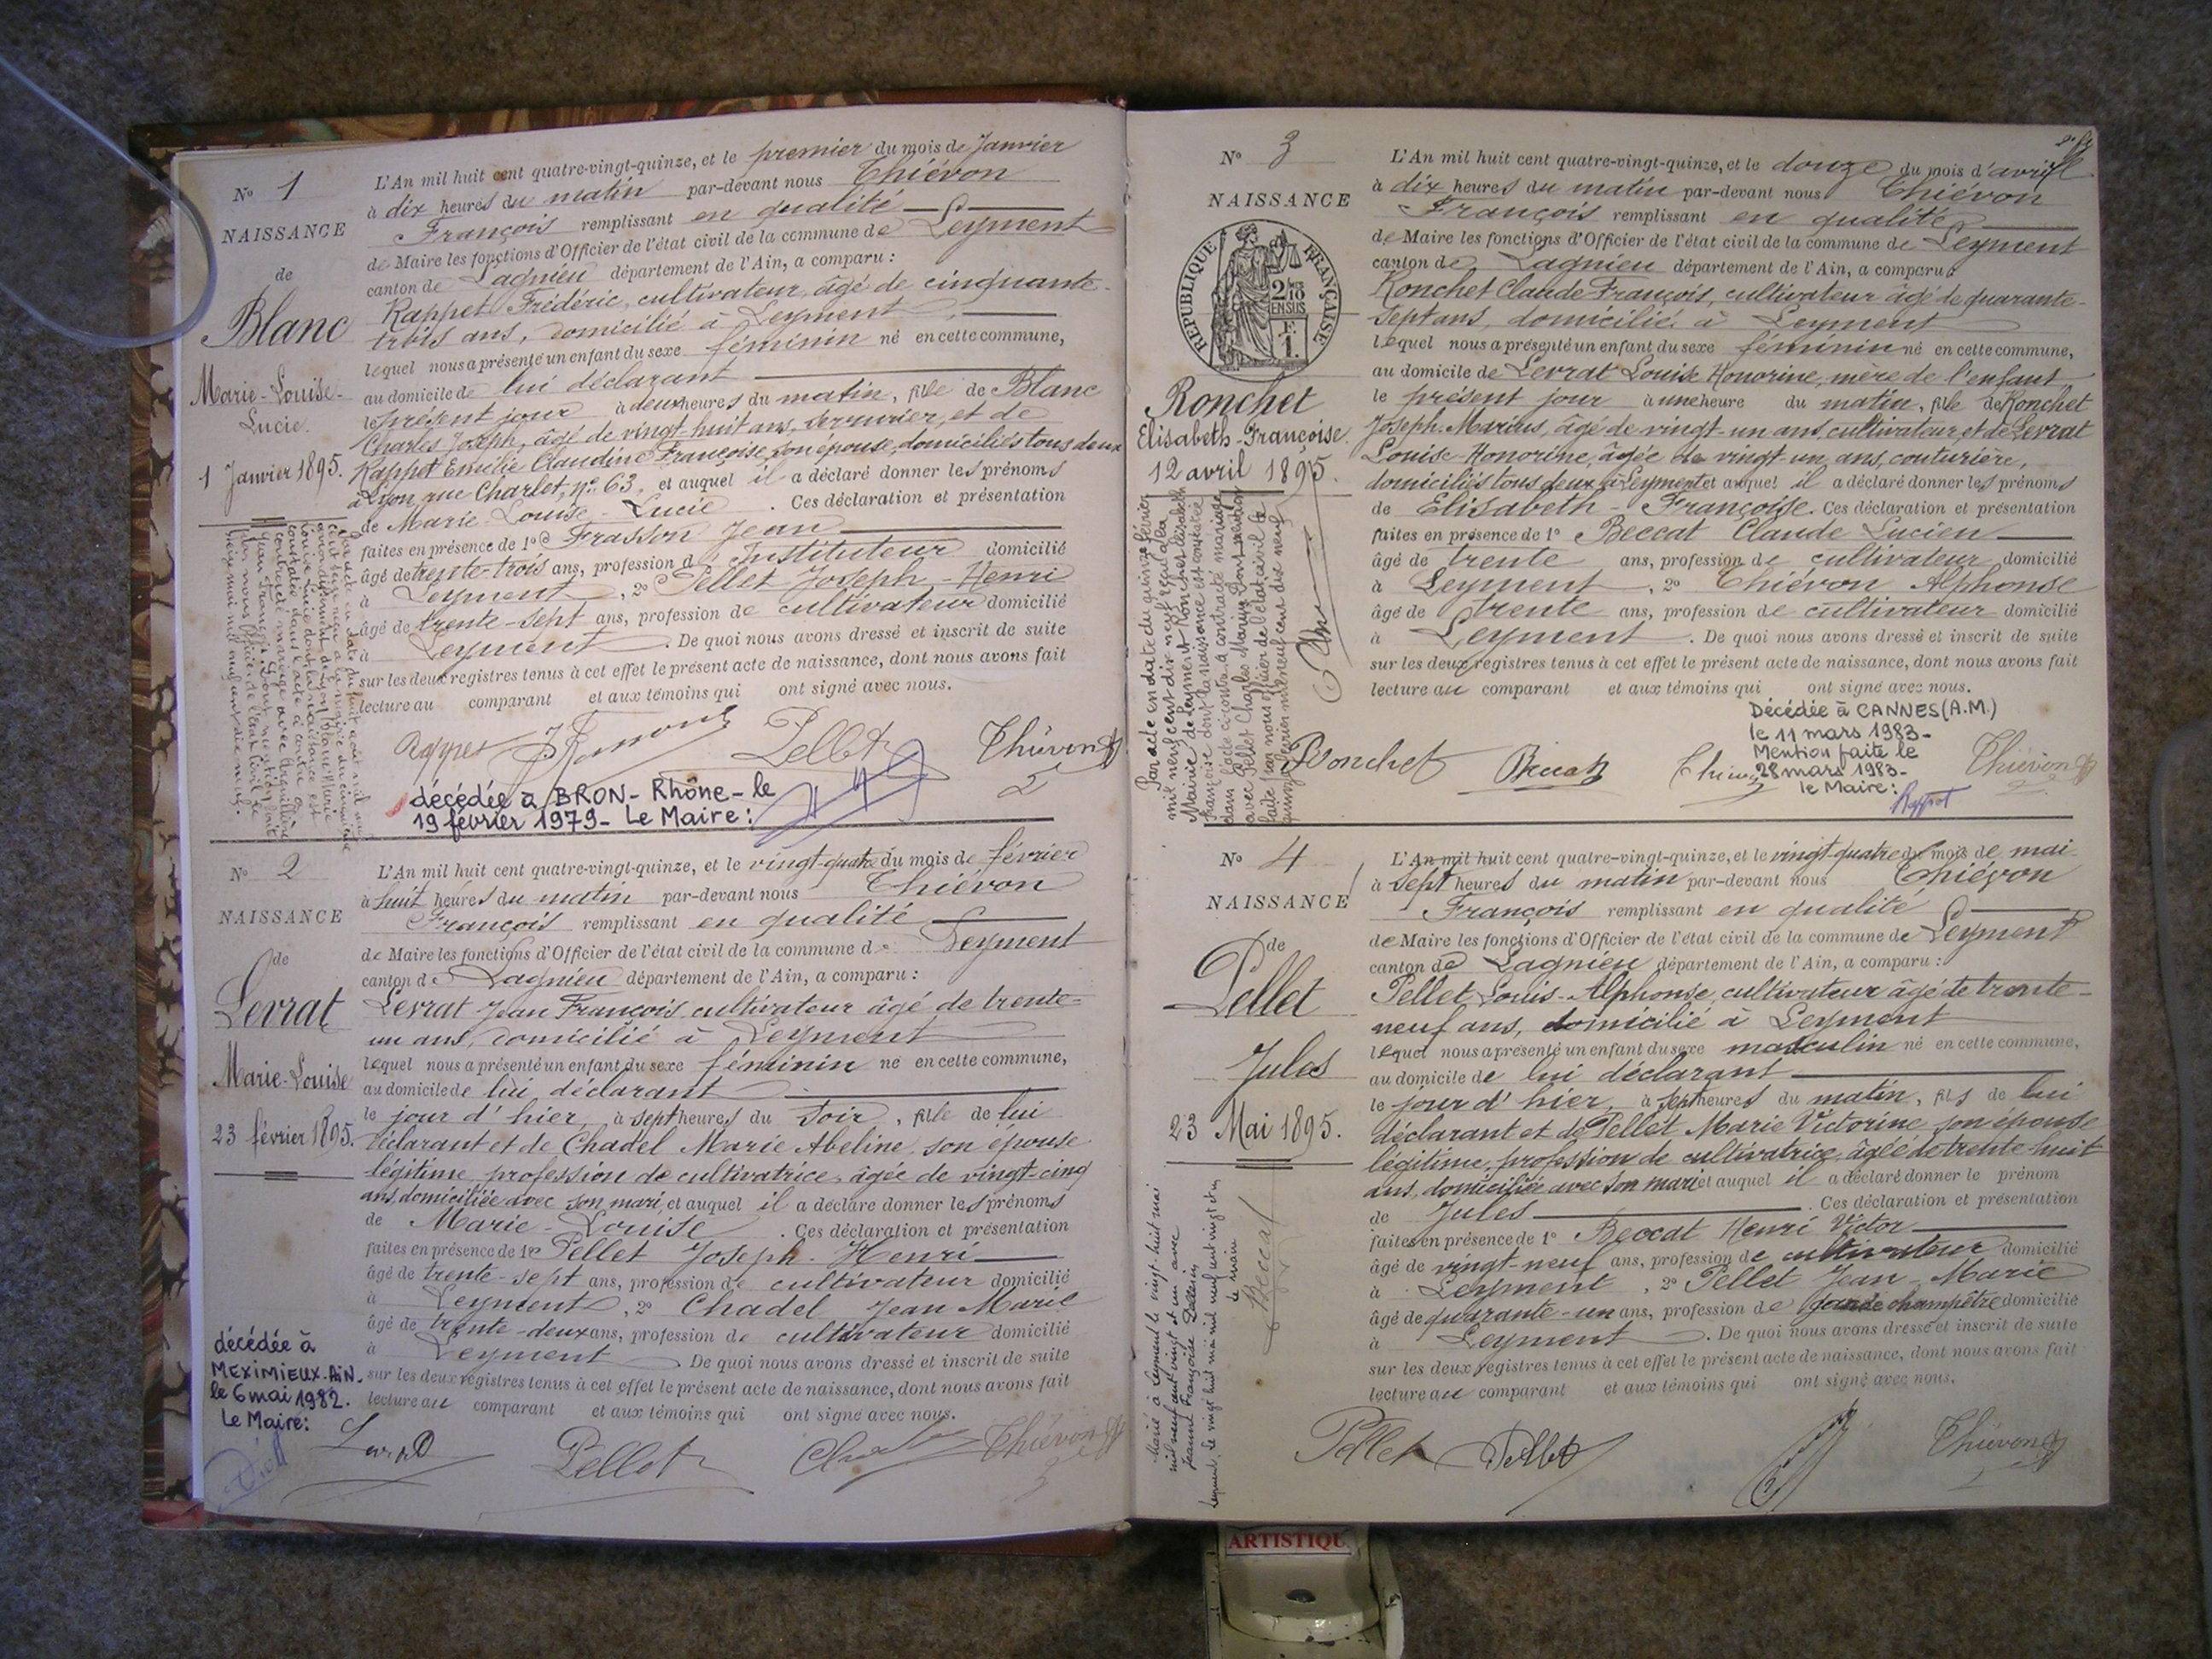 N° 1
NAISSANCE
de
Blanc
Marie-Louise-
Lucie.
1 Janvier 1895.
L'An mil huit cent quatre-vingt-quinze, et le premier du mois de Janvier
à dix heures du matin par-devant nous Thiévon
François remplissant en qualité
de Maire les fonctions d'Officier de l'état civil de la commune de Leyment
canton de Lagnieu département de l'Ain, a comparu :
Rappet Frédéric, cultivateur, âgé de cinquante-
trois ans, domicilié à Leyment
lequel nous a présenté un enfant du sexe féminin né en cette commune,
au domicile de lui déclarant
le présent jour à deux heures du matin, fille de Blanc
Charles Joseph, âgé de vingt huit ans, serrurier, et de
Rappet Emélie Claudine Françoise son épouse, domiciliés tous deux
à Lyon, rue Charlet, n° 63, et auquel il a déclaré donner les prénoms
de Marie-Louise-Lucie. Ces déclaration et présentation
faites en présence de 1° Frasson Jean
âgé de trente-trois ans, profession d'Instituteur domicilié
à Leyment, 2° Pellet Joseph-Henri
âgé de trente-sept ans, profession de cultivateur domicilié
à Leyment. De quoi nous avons dressé et inscrit de suite
sur les deux registres tenus à cet effet le présent acte de naissance, dont nous avons fait
lecture au comparant et aux témoins qui ont signé avec nous.
Pellet Thiévon
décédée à BRON-Rhône-le
19 février 1979- Le Maire:
N° 2
NAISSANCE
de
Levrat
Marie-Louise
23 février 1895.
L'An mil huit cent quatre-vingt-quinze, et le vingt-quatre du mois de février
à huit heures du matin par-devant nous Thiévon
François remplissant en qualité
de Maire les fonctions d'Officier de l'état civil de la commune de Leyment
canton de Lagnieu département de l'Ain, a comparu :
Levrat Jean François cultivateur âgé de trente-
un ans, domicilié à Leyment
lequel nous a présenté un enfant du sexe féminin né en cette commune,
au domicile de lui déclarant
le jour d'hier, à sept heures du soir, fille de lui
déclarant et de Chadel Marie Abeline, son épouse
légitime, profession de cultivatrice, âgée de vingt-cinq
ans, domiciliée avec son mari, et auquel il a déclaré donner les prénoms
de Marie-Louise. Ces déclaration et présentation
faites en présence de 1° Pellet Joseph-Henri
âgé de trente-sept ans, profession de cultivateur domicilié
à Leyment, 2° Chadel Jean Marie
âgé de trente-deux ans, profession de cultivateur domicilié
à Leyment De quoi nous avons dressé et inscrit de suite
sur les deux registres tenus à cet effet le présent acte de naissance, dont nous avons fait
lecture au comparant et aux témoins qui ont signé avec nous.
décédée à
MEXIMIEUX-AIN.
le 6 mai 1982.
Le Maire:
Pellet Thiévon
N° 3
NAISSANCE
REPUBLIQUE FRANÇAISE
2/10
EN SUS
F.
1.
Ronchet
Elisabeth-Françoise.
12 avril 1895.
L'An mil huit cent quatre-vingt-quinze, et le douze du mois d'avril
à dix heures du matin par-devant nous Thiévon
François remplissant en qualité
de Maire les fonctions d'Officier de l'état civil de la commune de Leyment
canton de Lagnieu département de l'Ain, a comparu :
Ronchet Claude François, cultivateur âgé de quarante-
sept ans, domicilié à Leyment
lequel nous a présenté un enfant du sexe féminin né en cette commune,
au domicile de Levrat Louise Honorine, mère de l'enfant
le présent jour à une heure du matin, fille de Ronchet
Joseph-Marius, âgé de vingt-un ans, cultivateur, et de Levrat
Louise-Honorine, âgée de vingt-un ans, couturière,
domiciliés tous deux à Leyment et auquel il a déclaré donner les prénoms
de Elisabeth-Françoise. Ces déclaration et présentation
faites en présence de 1° Beccat Claude Lucien
âgé de trente ans, profession de cultivateur domicilié
à Leyment, 2° Thiévon Alphonse
âgé de trente ans, profession de cultivateur domicilié
à Leyment. De quoi nous avons dressé et inscrit de suite
sur les deux registres tenus à cet effet le présent acte de naissance, dont nous avons fait
lecture au comparant et aux témoins qui ont signé avec nous.
Par acte en date du quinze février
mil neuf cent dix neuf reçu à la
Mairie de Leyment Ronchet Elisabeth
Françoise dont la naissance est constatée
dans l'acte ci-contre a contracté mariage
avec Pellet Charles Marius Dont mention
faite par nous officier de l'état civil le
quinze février mil neuf cent dix neuf
Décédée à CANNES (A.M.)
le 11 mars 1983-
Mention faite le
28 mars 1983-
le Maire:
Ronchet Beccat Thiévon
N° 4
NAISSANCE
de
Pellet
Jules
23 Mai 1895.
L'An mil huit cent quatre-vingt-quinze, et le vingt-quatre du mois de mai
à sept heures du matin par-devant nous Thiévon
François remplissant en qualité
de Maire les fonctions d'Officier de l'état civil de la commune de Leyment
canton de Lagnieu département de l'Ain, a comparu :
Pellet Louis-Alphonse, cultivateur âgé de trente-
neuf ans, domicilié à Leyment
lequel nous a présenté un enfant du sexe masculin né en cette commune,
au domicile de lui déclarant
le jour d'hier, à sept heures du matin, fils de lui
déclarant et de Pellet Marie Victorine son épouse
légitime, profession de cultivatrice, âgée de trente-huit
ans, domiciliée avec son mari et auquel il a déclaré donner le prénom
de Jules. Ces déclaration et présentation
faites en présence de 1° Beccat Henri Victor
âgé de vingt-neuf ans, profession de cultivateur domicilié
à Leyment, 2° Pellet Jean-Marie
âgé de quarante-un ans, profession de garde champêtre domicilié
à Leyment. De quoi nous avons dressé et inscrit de suite
sur les deux registres tenus à cet effet le présent acte de naissance, dont nous avons fait
lecture au comparant et aux témoins qui ont signé avec nous.
Marié à Leyment le vingt-huit mai
mil neuf cent vingt et un avec
Jeanne Françoise
Leyment, le vingt huit mai mil neuf cent vingt et un
Le maire
Beccat
Pellet Pellet Thiévon
ARTISTIQU